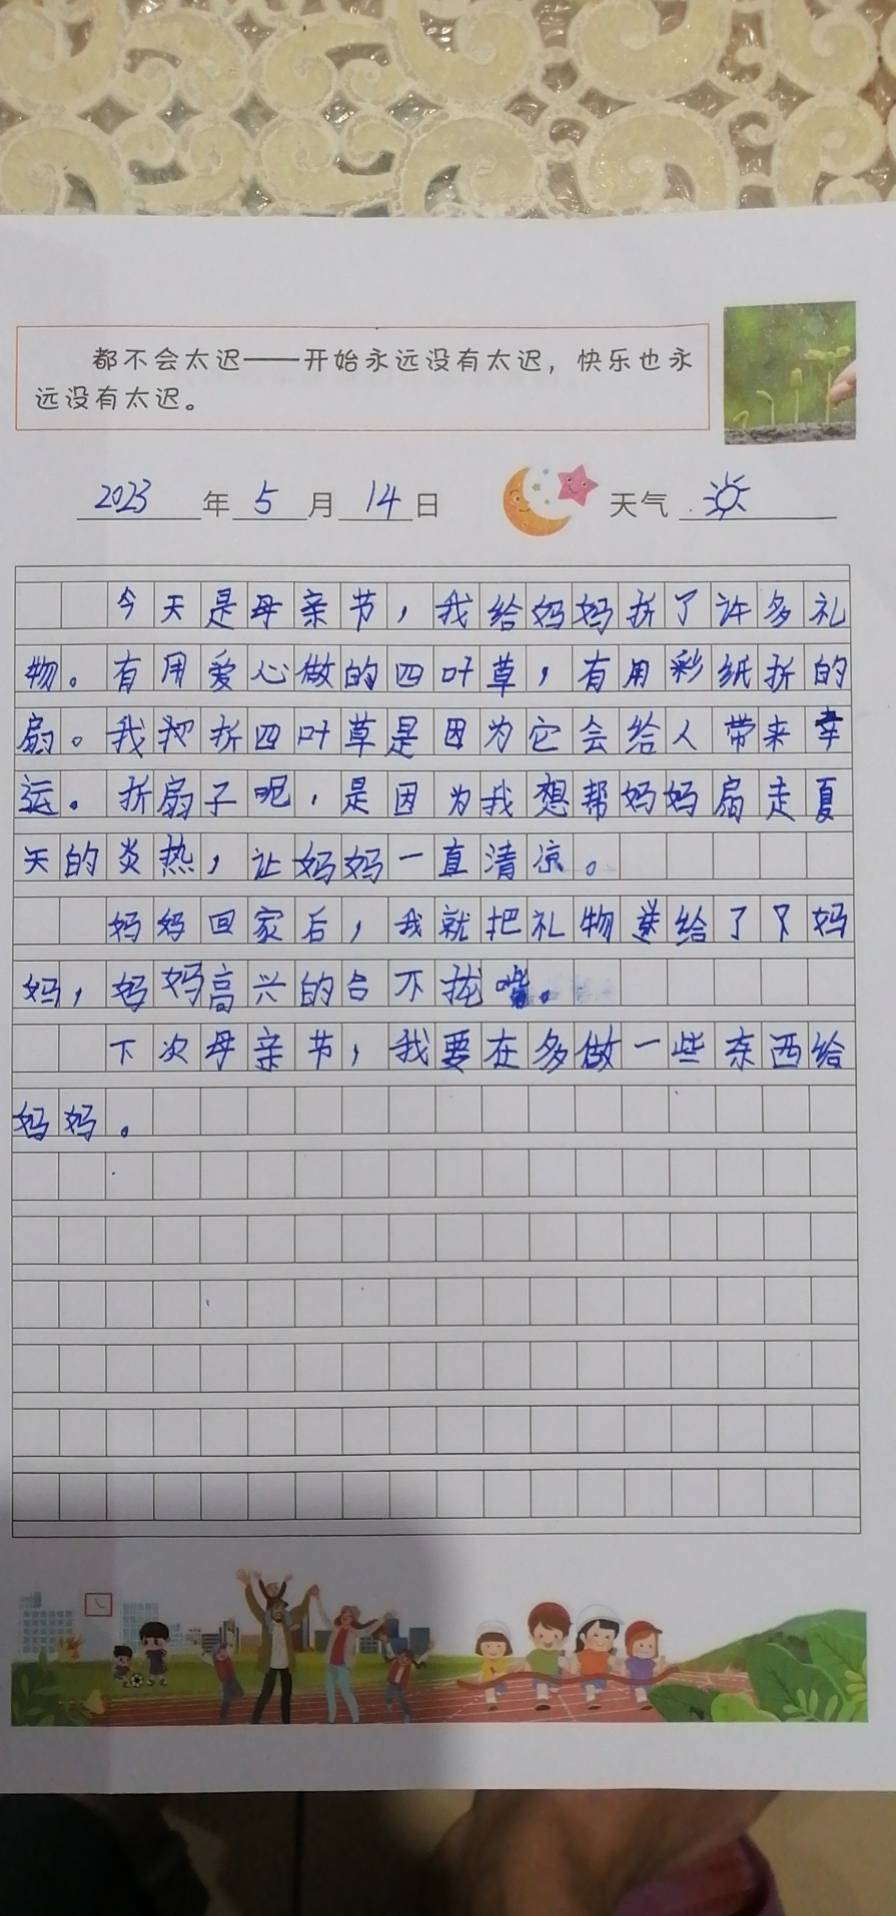 都不会太迟——开始永远没有太迟，快乐也永
远没有太迟。
2023年5月14日 天气
今天是母亲节，我给妈妈折了许多礼
物。有用爱心做的四叶草，有用彩纸折的
扇。我把折四叶草是因为它会给人带来幸
运。折扇子呢，是因为我想帮妈妈扇走夏
天的炎热，让妈妈一直清凉。
妈妈回家后，我就把礼物送给了妈
妈，妈妈高兴的合不拢嘴。
下次母亲节，我要在多做一些东西给
妈妈。